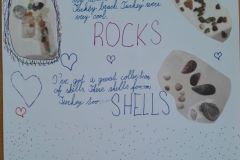 Turkey beach Turkey were
very cool.
ROCKS
I've got a great collection
of shells. These shells from
Turkey too.
SHELLS